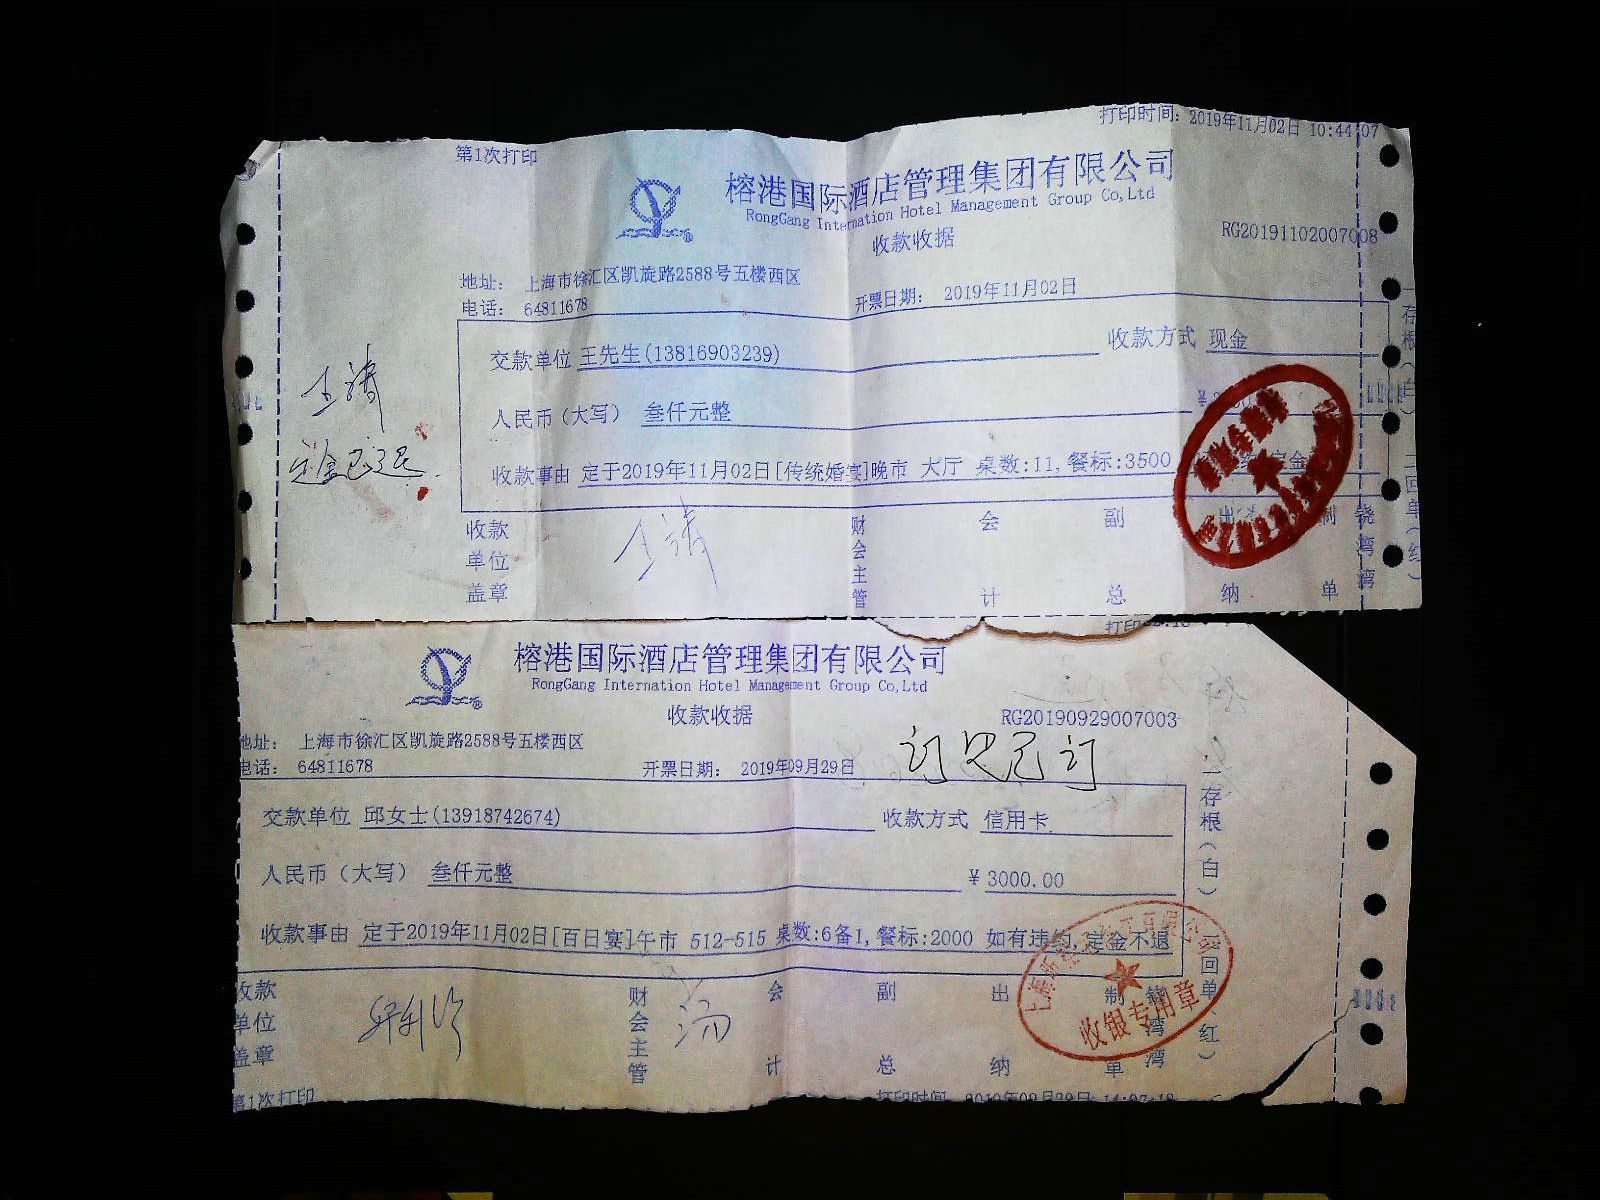 打印时间: 2019年11月02日 10:44:07
第1次打印
榕港国际酒店管理集团有限公司
RongGang Internation Hotel Management Group Co,Ltd
收款收据
RG20191102007008
地址: 上海市徐汇区凯旋路2588号五楼西区
电话: 64811678
开票日期: 2019年11月02日
交款单位 王先生(13816903239)
收款方式 现金
人民币（大写） 叁仟元整
收款事由 定于2019年11月02日[传统婚宴]晚市 大厅 桌数:11,餐标:3500 定金
定金已退
收款单位盖章
财会主管
会计
副总
出纳
制单
饶湾湾
榕港国际酒店管理集团有限公司
RongGang Internation Hotel Management Group Co,Ltd
收款收据
RG20190929007003
地址: 上海市徐汇区凯旋路2588号五楼西区
电话: 64811678
开票日期: 2019年09月29日
交款单位 邱女士(13918742674)
收款方式 信用卡
人民币（大写） 叁仟元整
¥ 3000.00
收款事由 定于2019年11月02日[百日宴]午市 512-515 桌数:6备1,餐标:2000 如有违约,定金不退
一存根(白)
二回单(红)
收银专用章
收款单位盖章
财会主管
会计
副总
出纳
制单
饶湾湾
第1次打印
打印时间: 2019年09月29日 14:27:18